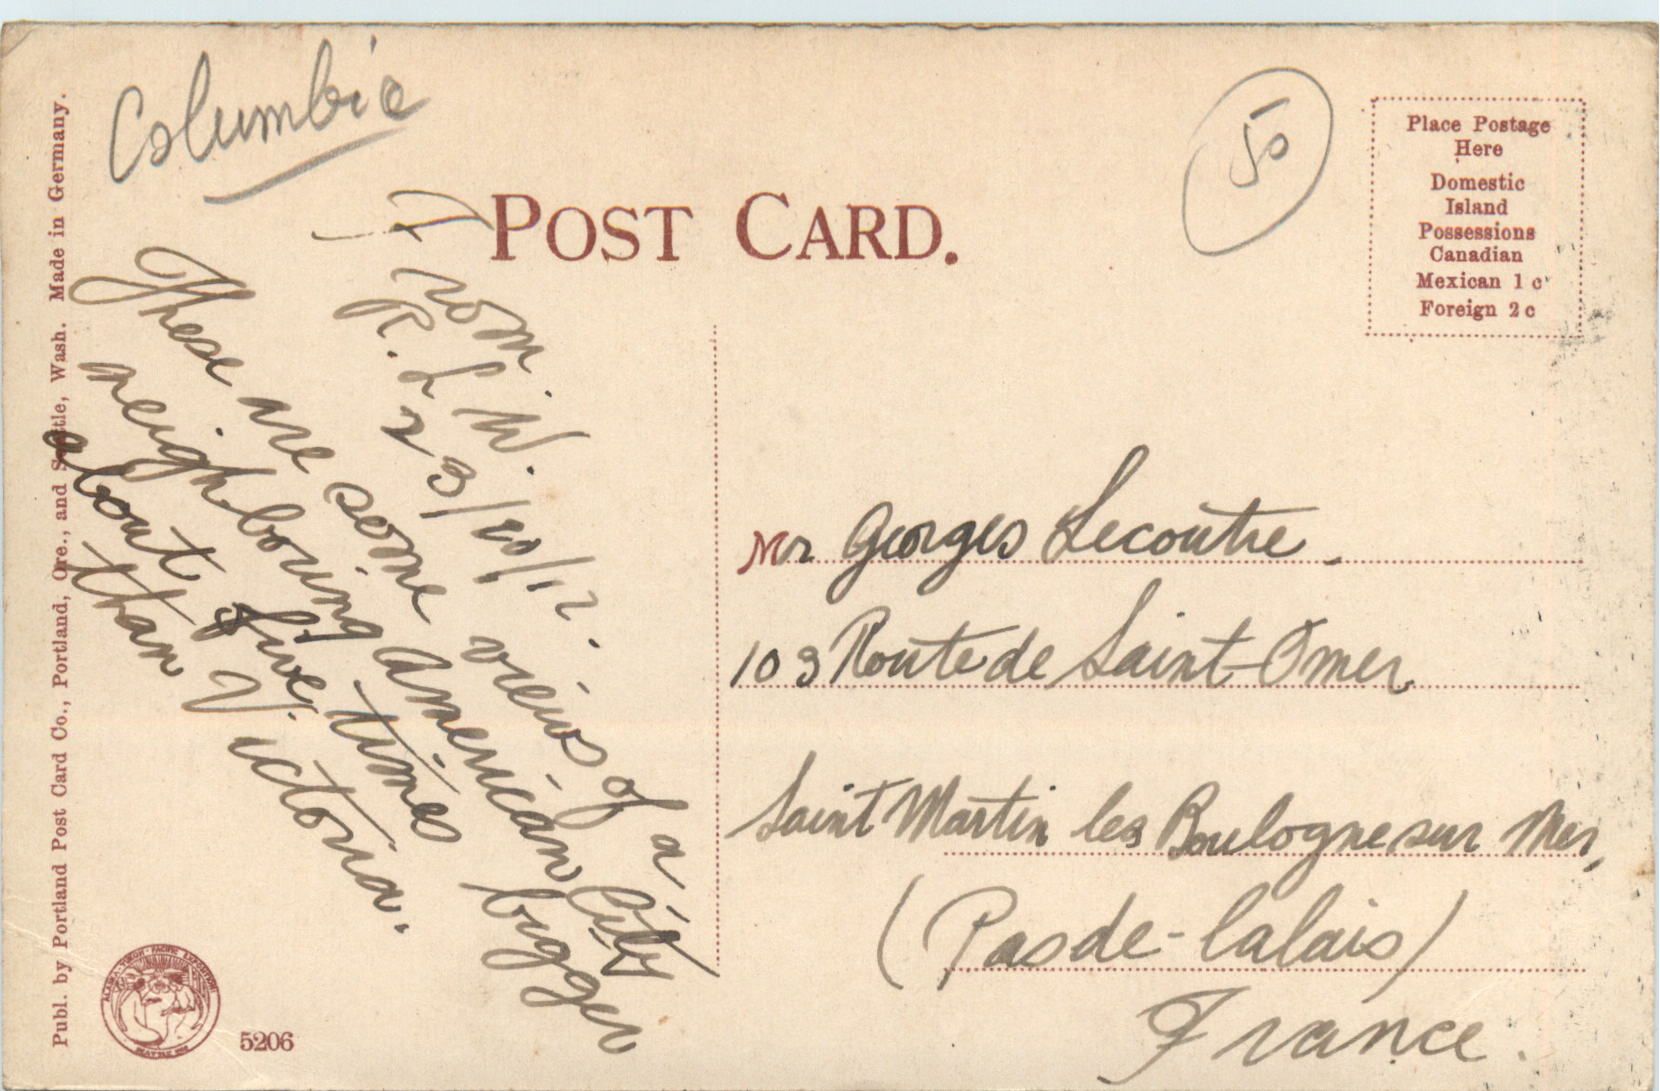 Columbia
50
POST CARD.
Place Postage
Here
Domestic
Island
Possessions
Canadian
Mexican 1 c
Foreign 2 c
From
R. L. W.
23/10/12.
These are some views of a
neighbouring American City
about five times bigger
than Victoria.
Mr Georges Lecoutre.
103 Route de Saint-Omer
Saint Martin les Boulogne sur Mer,
(Pas de-Calais)
France.
Publ. by Portland Post Card Co., Portland, Ore., and Seattle, Wash. Made in Germany.
ALASKA-YUKON-PACIFIC EXPOSITION
SEATTLE 1909
5206